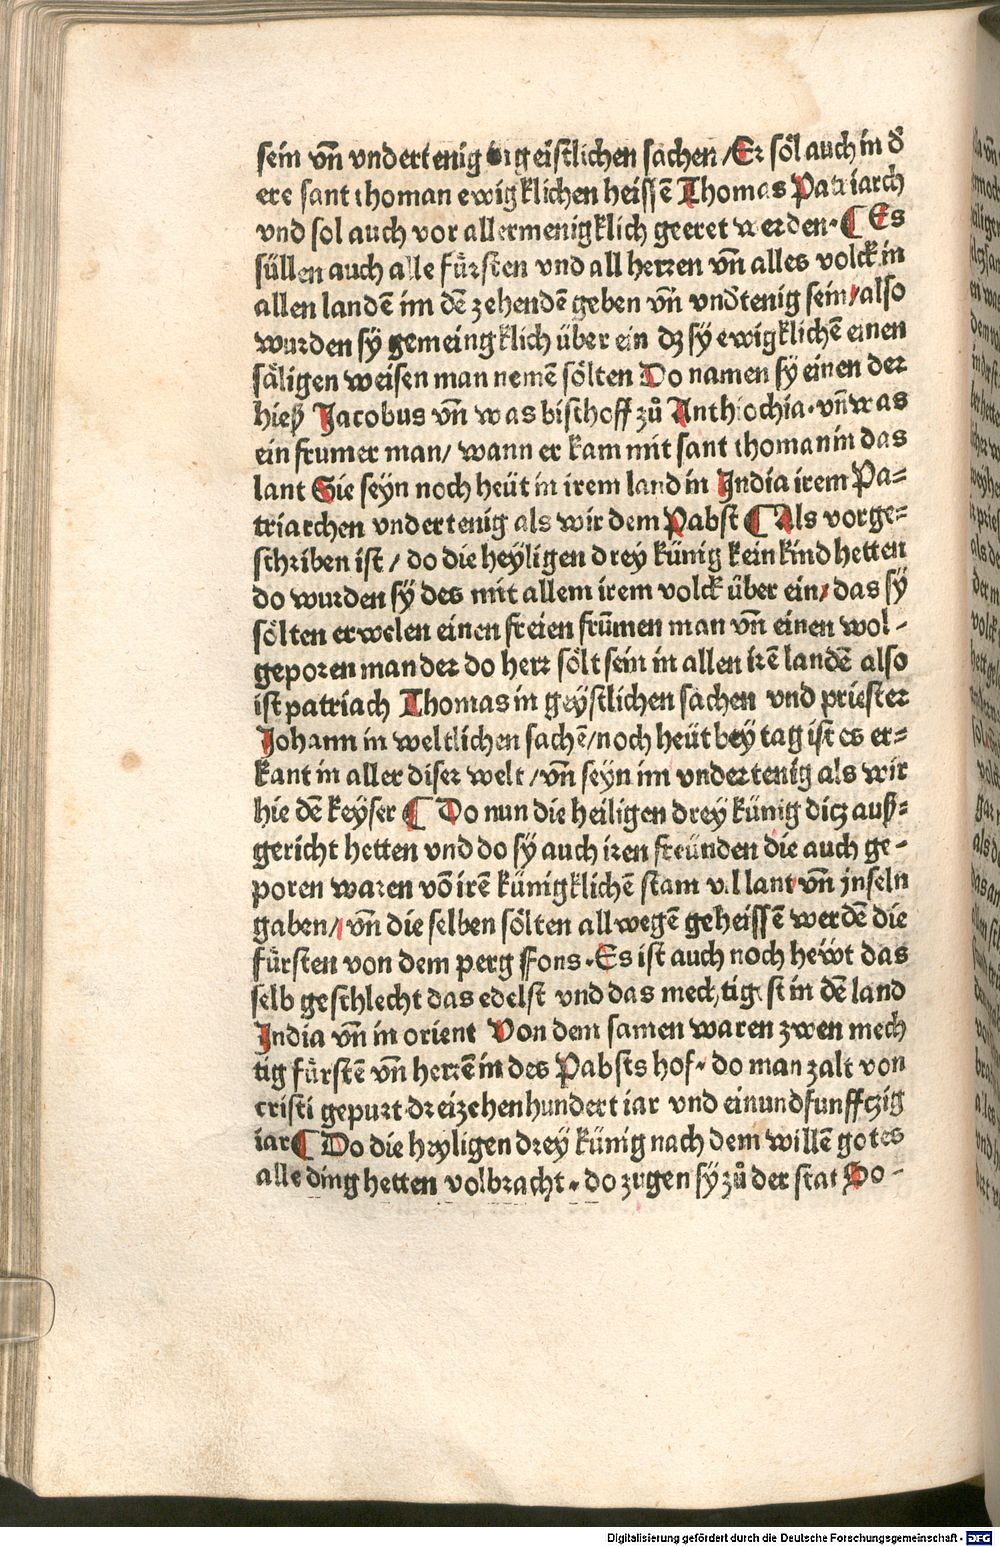 sein vn̄ vndertenig in geistlichen sachen / Er söl auch in d̄
ere sant thoman ewigklichen heissē Thomas Patriarch
vnd sol auch vor allermenigklich geeret werden · ¶ Es
süllen auch alle fürsten vnd all herren vn̄ alles volck in
allen landē im dē zehendē geben vn̄ vnd̄tenig sein / also
wurden sy gemeingklich über ein dz sy ewigklichē einen
säligen weisen man nemē sölten Do namen sy einen der
hieß Jacobus vn̄ was bischoff zů Anthiochia · vn̄ was
ein frumer man / wann er kam mit sant thoman in das
lant Sie seyn noch heüt in irem land in India irem Pa=
triarchen vndertenig als wir dem Pabst ¶ Als vorge=
schriben ist / do die heyligen drey künig kein kind hetten
do wurden sy des mit allem irem volck über ein / das sÿ
sölten erwelen einen freien frūmen man vn̄ einen wol-
geporen man der do herr sölt sein in allen irē landē also
ist patriach Thomas in geystlichen sachen vnd priester
Johann in weltlichen sachē / noch heüt bey tag ist es er=
kant in aller diser welt / vn̄ seyn im vndertenig als wir
hie dē keyser ¶ Do nun die heiligen drey künig ditz auß=
gericht hetten vnd do sy auch iren freünden die auch ge-
poren waren vō irē künigklichē stam vil lant vn̄ jnseln
gaben / vn̄ die selben sölten allwegē geheissē werdē die
fürsten von dem perg Fons · Es ist auch noch heẅt das
selb geschlecht das edelst vnd das mechtigest in dē land
India vn̄ in orient Von dem samen waren zwen mech
tig fürstē vn̄ herrē in des Pabsts hof · do man zalt von
cristi gepurt dreizehenhundert iar vnd einundfunfftzig
iar ¶ Do die heyligen drey künig nach dem willē gotes
alle ding hetten volbracht · do zugen sÿ zů der stat So-
Digitalisierung gefördert durch die Deutsche Forschungsgemeinschaft - DFG